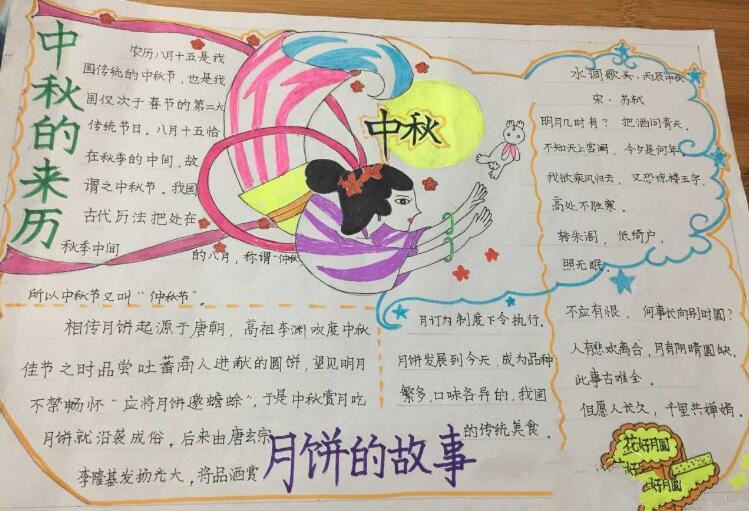 中秋的来历
农历八月十五是我
国传统的中秋节，也是我
国仅次于春节的第二大
传统节日。八月十五恰
在秋季的中间，故
谓之中秋节。我国
古代历法把处在
秋季中间
的八月，称谓“仲秋”
所以中秋节又叫“仲秋节”。
中秋
水调歌头·丙辰中秋
宋·苏轼
明月几时有？把酒问青天。
不知天上宫阙，今夕是何年，
我欲乘风归去，又恐琼楼玉宇，
高处不胜寒。
转朱阁，低绮户，
照无眠。
不应有恨，何事长向别时圆？
人有悲欢离合，月有阴晴圆缺，
此事古难全。
但愿人长久，千里共婵娟。
相传月饼起源于唐朝，高祖李渊欢度中秋
佳节之时品尝吐蕃商人进献的圆饼，望见明月
不禁畅怀“应将月饼邀蟾蜍”，于是中秋赏月吃
月饼就沿袭成俗，后来由唐玄宗
李隆基发扬光大，将品酒赏
月订为制度下令执行。
月饼发展到今天，成为品种
繁多，口味各异的，我国
的传统美食。
月饼的故事
花好月圆
好
好月圆